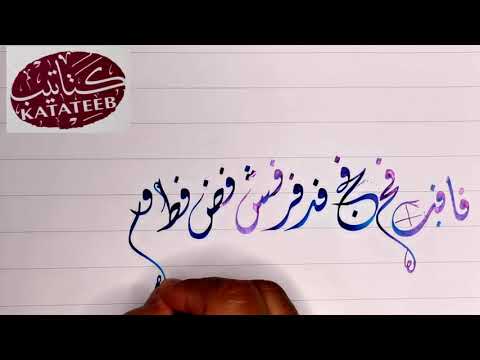 كتاتيب
KATATEEB
فا فب فح فج فد فر فس فص فط